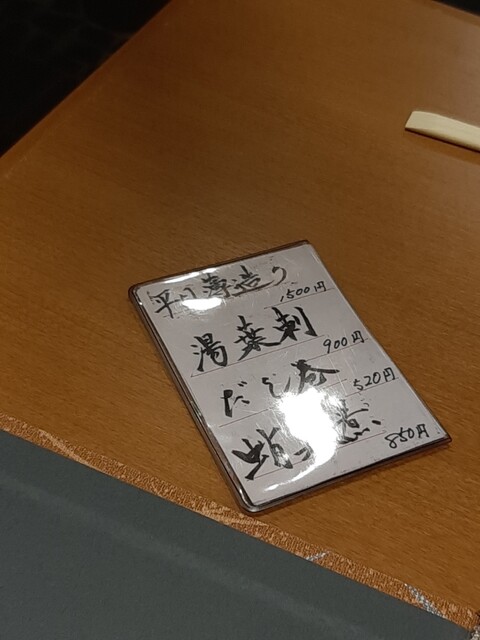 平目薄造り
1500円
湯葉刺
900円
だし巻
520円
蛸 煮
850円